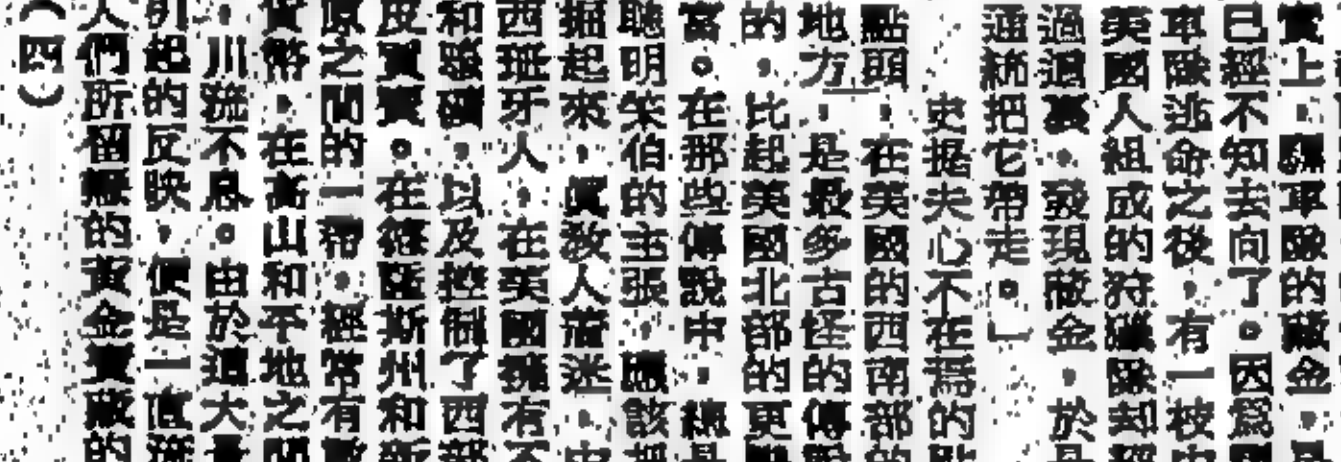 實上，驅車隊的藏金，
已經不知去向了。因爲
車隊逃命之後，有一被
美國人組成的狩獵隊却
過過裏，發現藏金，於是
通統把它帶走。」
史提夫心不在焉的點
點頭，在美國的西南部的
地方，是最多古怪的傳說
的，比起美國北部的更
富。在那些傳說中，總是
聰明笨伯的主張，應該把
掘起來，眞教人着迷，
西班牙人，在美國擁有不
和發礦，以及控制了西部
皮買賣。在維斯州和新
原之間的一，經常有
貨幣，在高山和平地之間
，川流不息。由於這大量
引起的反映，便是一直流
人們所留戀的黃金寶藏的
（四）